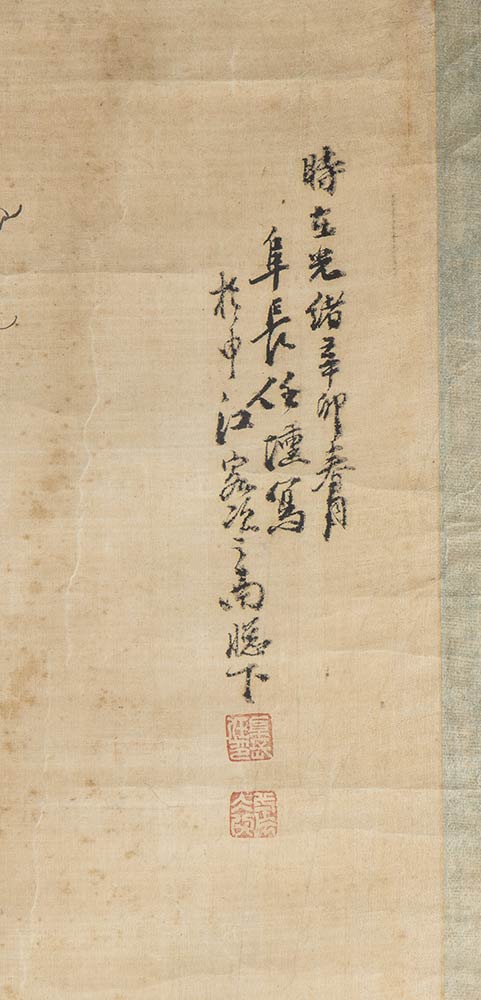 時在光緒辛卯春月
阜長任壎寫
於申江客次之南牕下